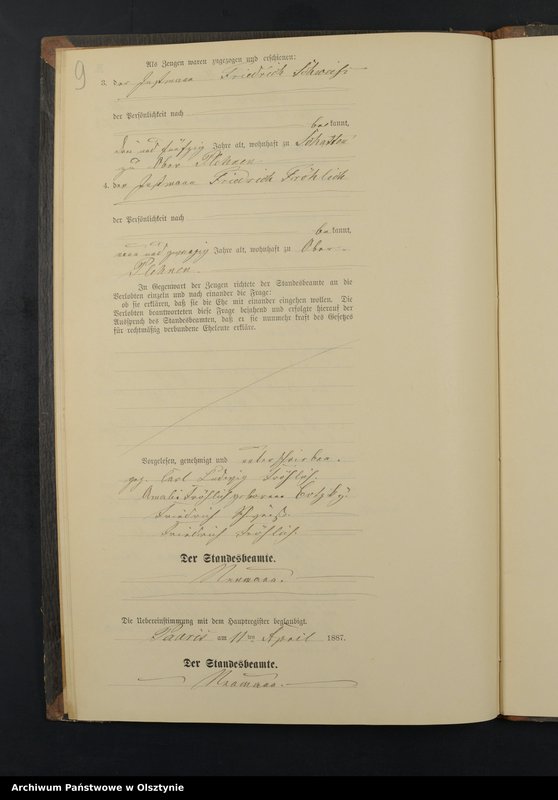 9
Als Zeugen waren zugezogen und erschienen:
3. der Instmann Friedrich Schweiß
der Persönlichkeit nach
bekannt,
drei und fünfzig Jahre alt, wohnhaft zu Schatten
zu Ober Plehnen.
4. der Instmann Friedrich Fröhlich
der Persönlichkeit nach
bekannt,
neun und zwanzig Jahre alt, wohnhaft zu Ober-
Plehnen.
In Gegenwart der Zeugen richtete der Standesbeamte an die
Verlobten einzeln und nach einander die Frage:
ob sie erklären, daß sie die Ehe mit einander eingehen wollen. Die
Verlobten beantworteten diese Frage bejahend und erfolgte hierauf der
Ausspruch des Standesbeamten, daß er sie nunmehr kraft des Gesetzes
für rechtmäßig verbundene Eheleute erkläre.
Vorgelesen, genehmigt und unterschrieben.
gez. Carl Ludwig Fröhlich.
Amalie Fröhlich geborene
Friedrich Schweiß.
Friedrich Fröhlich.
Der Standesbeamte.
Neumann.
Die Uebereinstimmung mit dem Hauptregister beglaubigt.
Paaris am 11ten April 1887.
Der Standesbeamte.
Neumann.
Archiwum Państwowe w Olsztynie